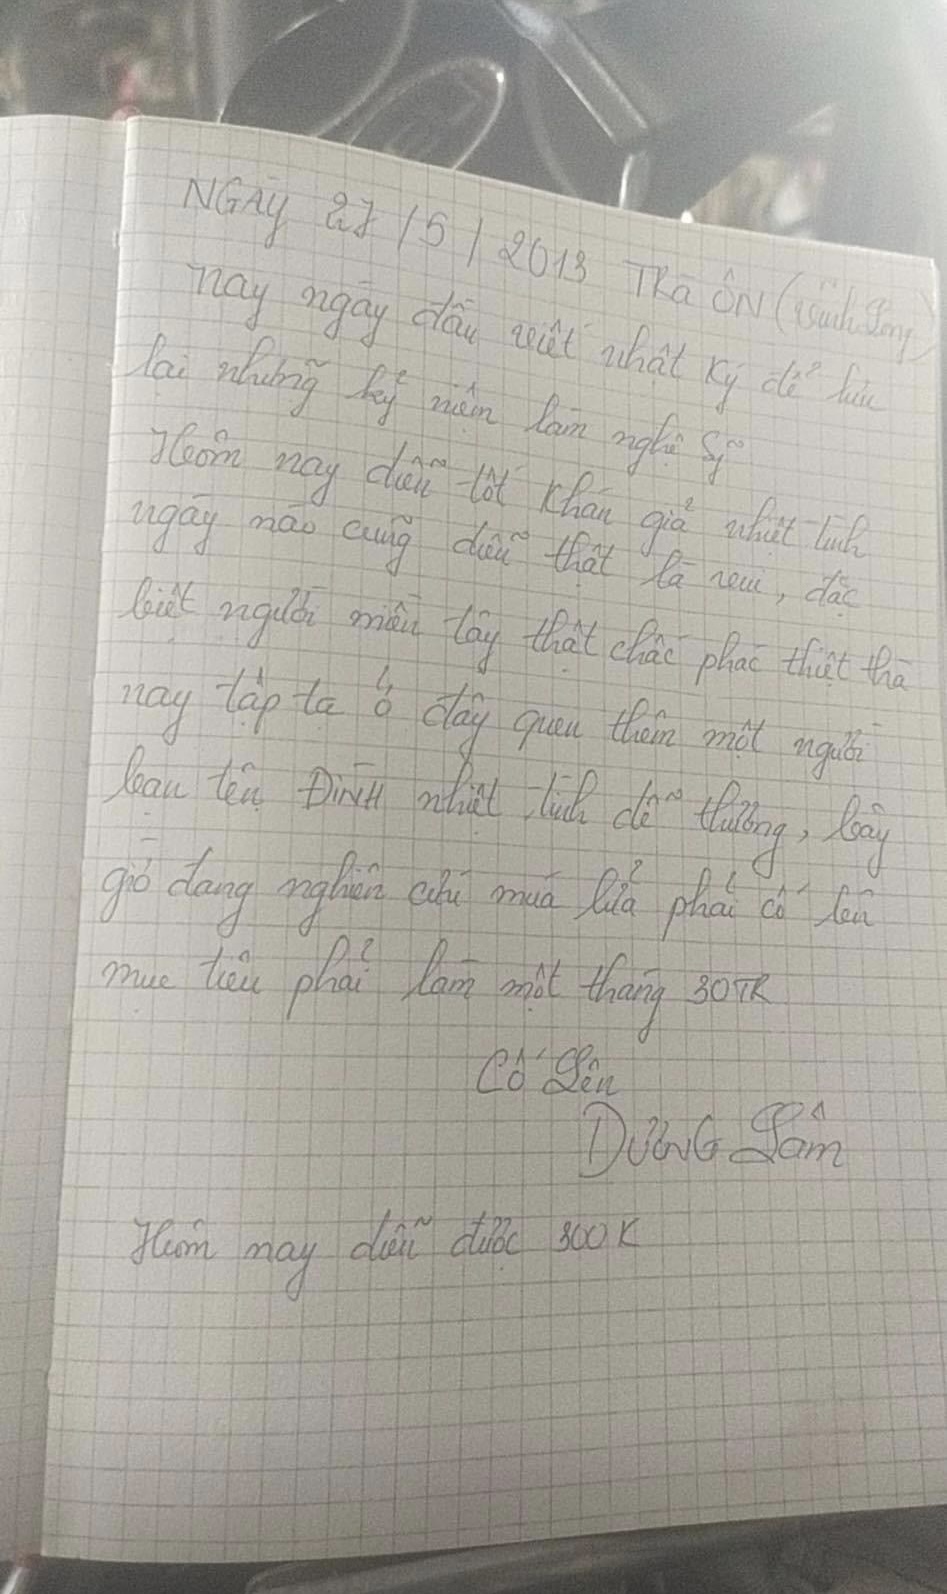 NGÀY 27/5/2013 TRÀ ÔN (Vĩnh Long)
Nay ngày đầu viết nhật ký để lưu
lại những kỷ niệm làm nghệ sỹ
Hôm nay diễn tốt khán giả nhiệt tình
ngày nào cũng diễn thật là vui, đặc
biệt người miền tây thật chất phác thiệt thà
nay tấp ta ở đây quen thêm một người
bạn tên ĐÌNH nhiệt tình dễ thương, bây
giờ đang nghiên cứu múa lửa phải cố lên
mục tiêu phải làm một tháng 30TR
Cố Lên
DƯƠNG Lâm
Hôm nay diễn được 300K